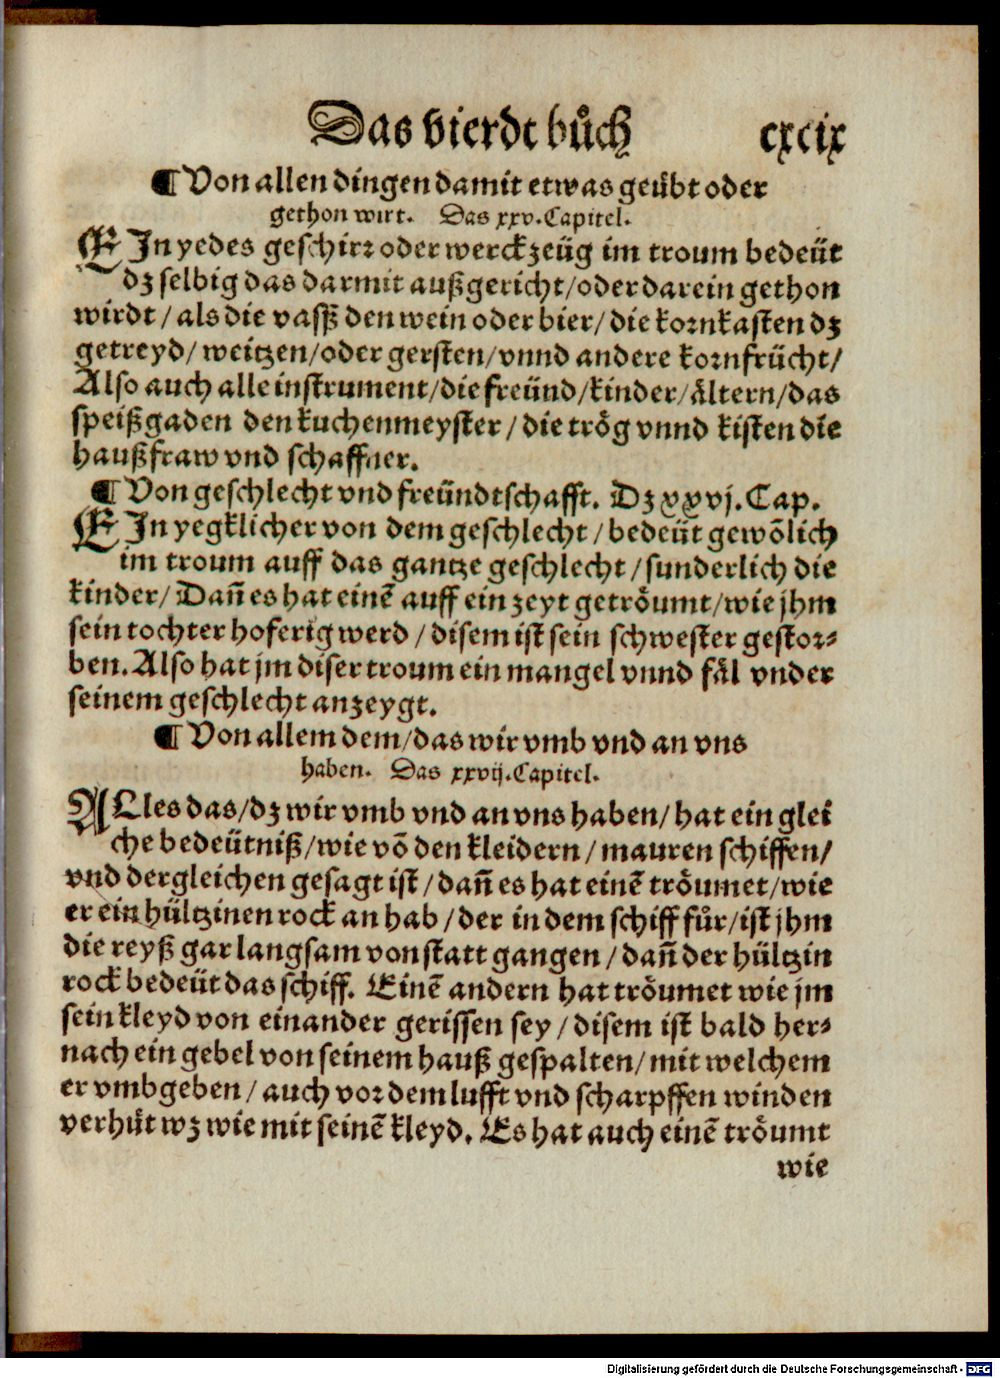 Das vierdt bůch cxcix
¶ Von allen dingen damit etwas geübt oder
gethon wirt. Das xxv. Capitel.
EIn yedes geschirr oder werckzeüg im troum bedeüt
dz selbig das darmit außgericht/oder darein gethon
wirdt/als die vassz den wein oder bier/die kornkasten dz
getreyd/weitzen/oder gersten/vnnd andere kornfrücht/
Also auch alle instrument/die freünd/kinder/ältern/das
speißgaden den kuchenmeyster/die trög vnnd kisten die
haußfraw vnd schaffner.
¶ Von geschlecht vnd freündtschafft. Dz xxvj. Cap.
EIn yegklicher von dem geschlecht/bedeüt gewõlich
im troum auff das gantze geschlecht/sunderlich die
kinder/Dañ es hat einẽ auff ein zeyt getröumt/wie jhm
sein tochter hoferig werd/disem ist sein schwester gestor⸗
ben. Also hat jm diser troum ein mangel vnnd fäl vnder
seinem geschlecht anzeygt.
¶ Von allem dem/das wir vmb vnd an vns
haben. Das xxvij. Capitel.
ALles das/dz wir vmb vnd an vns haben/hat ein glei
che bedeütniß/wie võ den kleidern/mauren schiffen/
vnd dergleichen gesagt ist/dañ es hat einẽ tröumet/wie
er ein hültzinen rock an hab/der in dem schiff für/ist jhm
die reyß gar langsam von statt gangen/dañ der hültzin
rock bedeüt das schiff. Einẽ andern hat tröumet wie jm
sein kleyd von einander gerissen sey/disem ist bald her⸗
nach ein gebel von seinem hauß gespalten/mit welchem
er vmbgeben/auch vor dem lufft vnd scharpffen winden
verhüt wz wie mit seinẽ kleyd. Es hat auch einẽ tröumt
wie
Digitalisierung gefördert durch die Deutsche Forschungsgemeinschaft - DFG